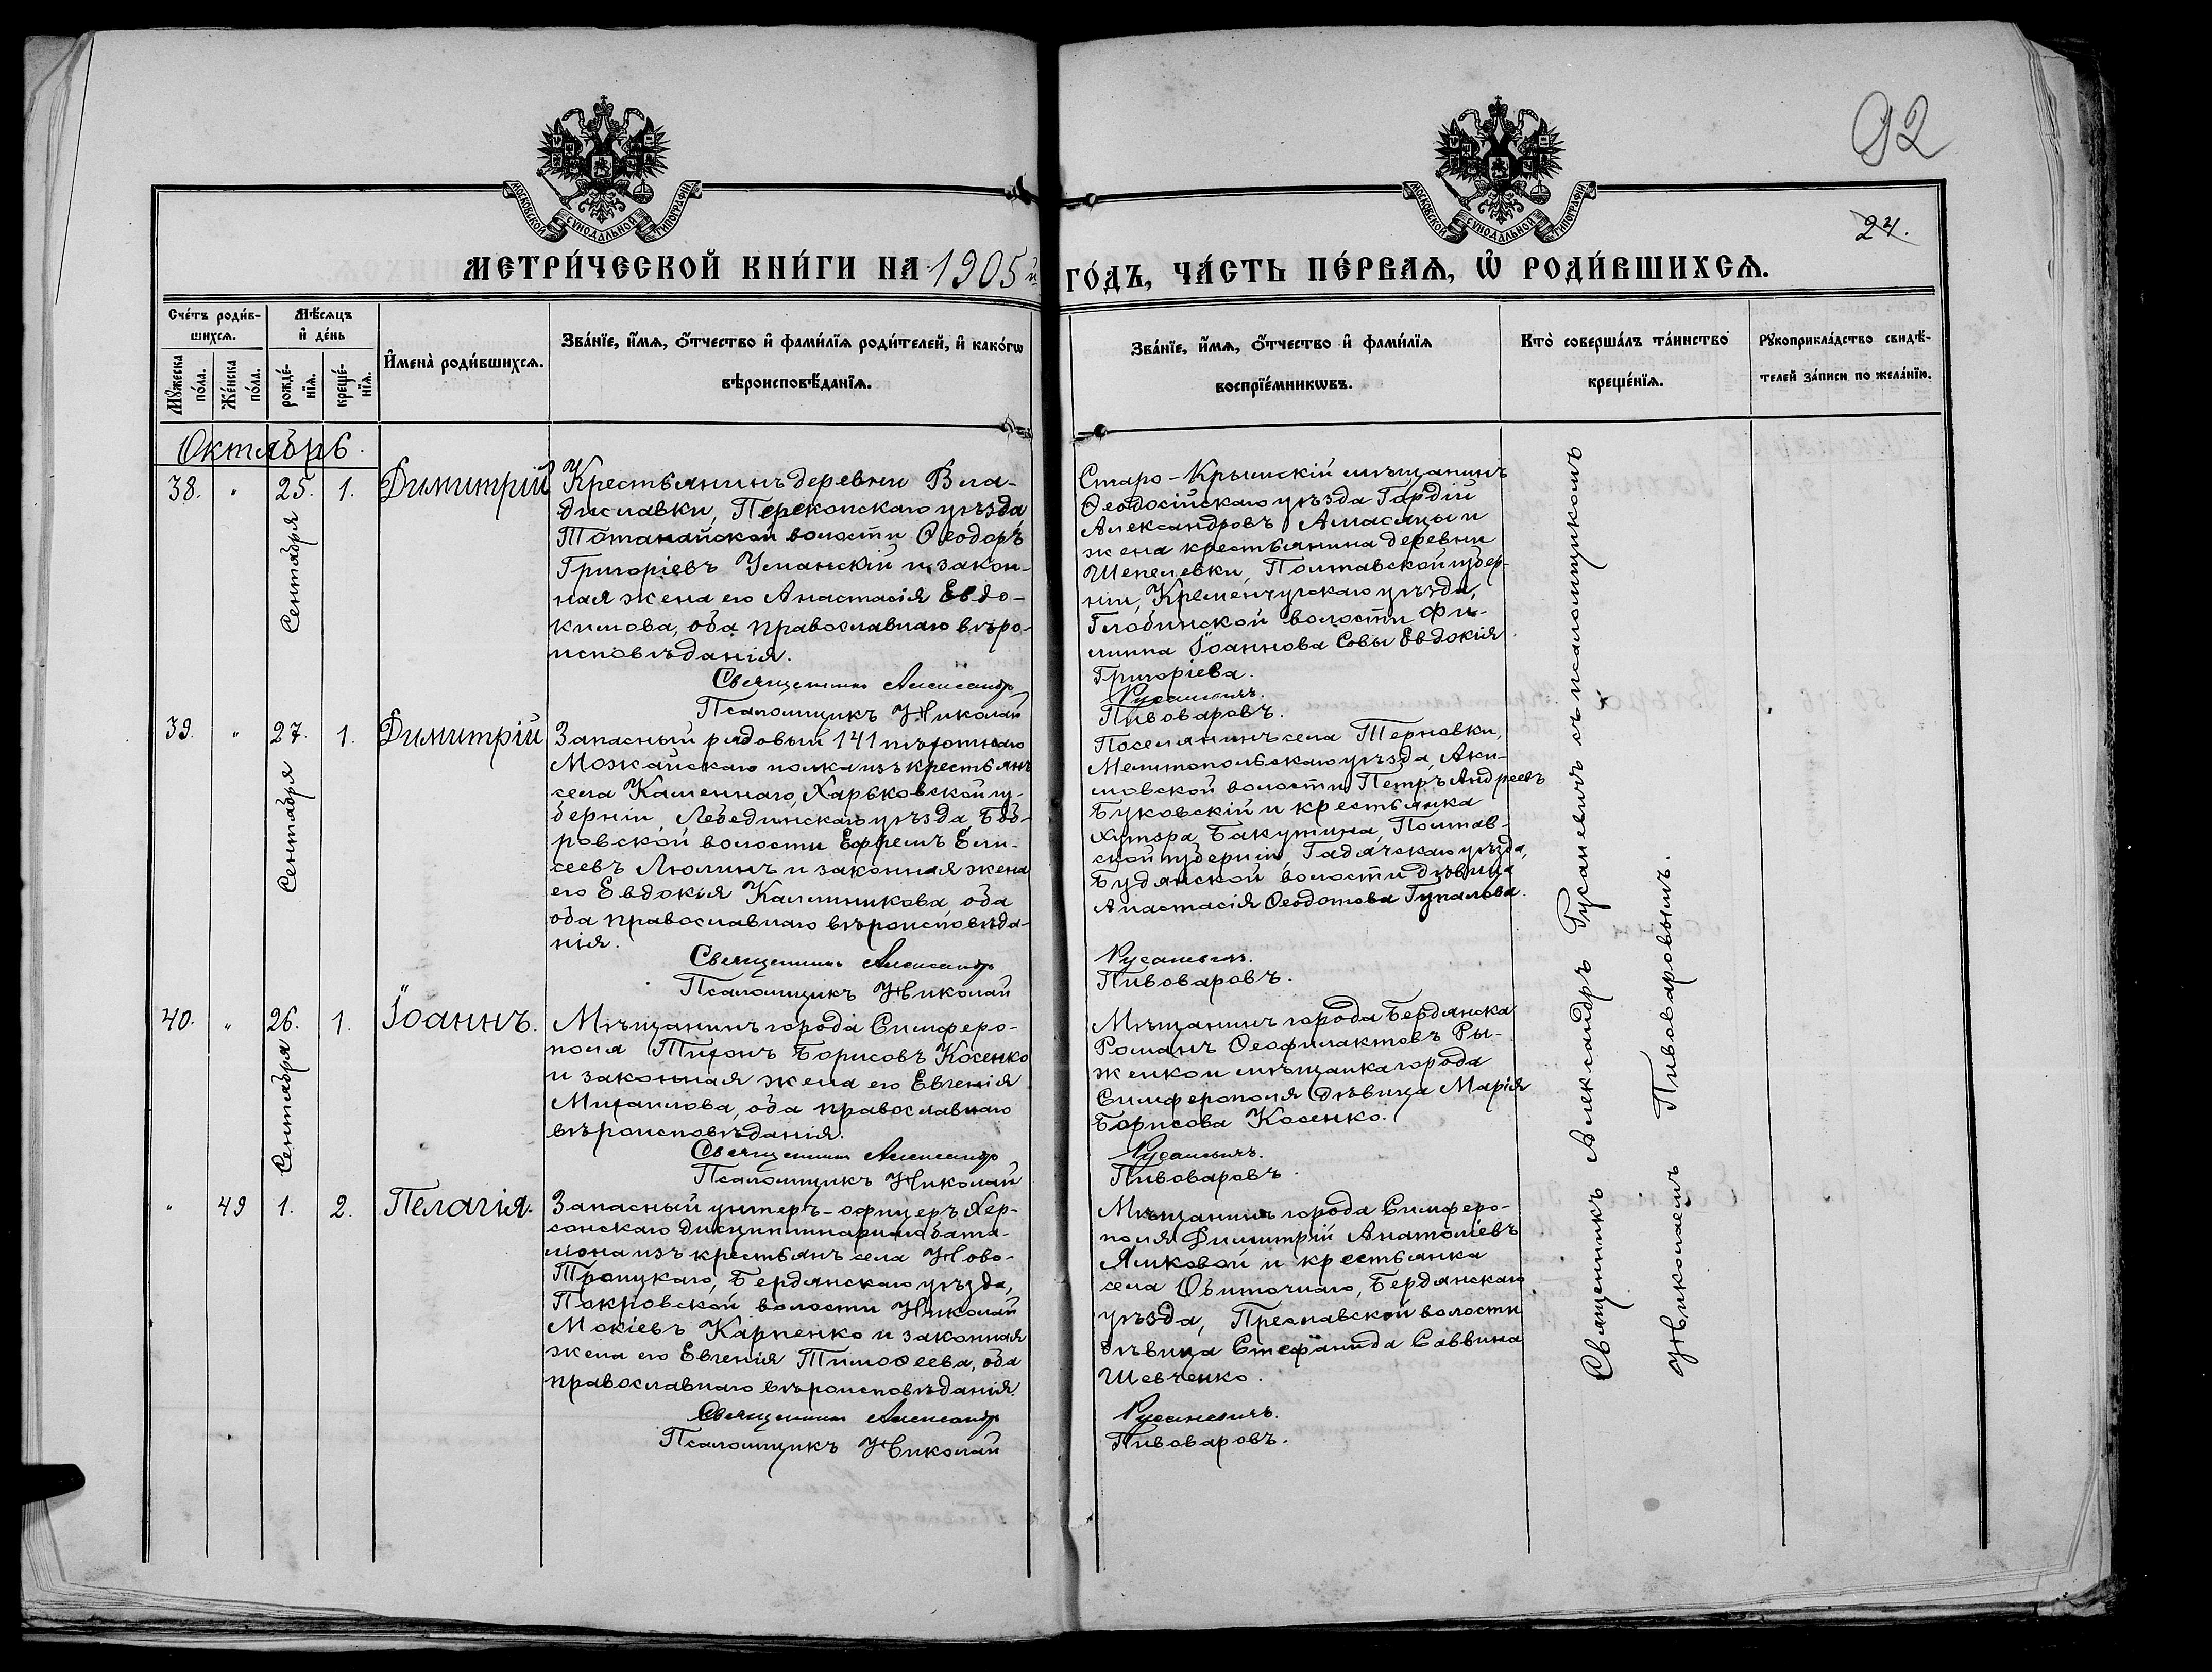 92
24.
МОСКОВСКОЙ СѴНОДАЛЬНОЙ ТИПОГРАФІИ
МОСКОВСКОЙ СѴНОДАЛЬНОЙ ТИПОГРАФІИ
МЕТРИ́ЧЕСКОЙ КНИ́ГИ НА 1905й ГО́ДЪ, ЧА́СТЬ ПЕ́РВАѦ, Ѡ҆ РОДИ́ВШИХСѦ.
Сче́тъ роди́в-
шихсѧ.
Мꙋ́жеска по́ла.
Же́нска по́ла.
Мѣ́сяцъ
и҆ де́нь
рожде́-
нїѧ.
креще́-
нїѧ.
И҆мена̀ роди́вшихсѧ.
Зва́нїе, и҆́мѧ, ѻ҆́тчество и҆ фами́лїѧ роди́телей, и҆ како́гѡ
вѣроисповѣ́данїѧ.
Зва́нїе, и҆́мѧ, ѻ҆́тчество и҆ фами́лїѧ
воспрїе́мникѡвъ.
Кто̀ соверша́лъ та́инство
креще́нїѧ.
Рꙋкоприкла́дство свидѣ́-
телей за́писи по жела́нїю.
Октябрь
38. " 25. 1. Димитрій
Сентября
Крестьянинъ деревни Вла-
диславки, Перекопскаго уѣзда
Тотанайской волости Ѳеодоръ
Григоріевъ Уманскій и закон-
ная жена его Анастасія Евдо-
кимова, оба православнаго вѣро-
исповѣданія.
Священникъ Александръ
Псаломщикъ Николай
Старо-Крымскій мѣщанинъ
Ѳеодосійскаго уѣзда Гордій
Александровъ и
жена крестьянина деревни
Шепелевки, Полтавской губер-
ніи, Кременчугскаго уѣзда,
Глобинской волости Фи-
липпа Іоаннова Совы Евдокія
Григоріева.
Русаневичъ.
Пивоваровъ.
39. " 27. 1. Димитрій
Сентября
Запасный рядовый 141 пѣхотнаго
Можайскаго полка изъ крестьянъ
села Каменнаго, Харьковской гу-
берніи, Лебединскаго уѣзда Боб-
ровской волости Ефремъ Ели-
сеевъ Люлинъ и законная жена
его Евдокія Каллиникова оба
оба православнаго вѣроисповѣда-
нія.
Священникъ Александръ
Псаломщикъ Николай
Поселянинъ села Терновки,
Мелитопольскаго уѣзда, Аки-
мовской волости Петръ Андреевъ
Буковскій и крестьянка
хутора Бакутина, Полтав-
ской губерніи, Гадячскаго уѣзда,
Будянской волости дѣвица
Анастасія Ѳеодотова Гупалова.
Русаневичъ.
Пивоваровъ.
40. " 26. 1. Іоаннъ.
Сентября
Мѣщанинъ города Симферо-
поля Тихонъ Борисовъ Косенко
и законная жена его Евгенія
Михаилова, оба православнаго
вѣроисповѣданія.
Священникъ Александръ
Псаломщикъ Николай
Мѣщанинъ города Бердянска
Романъ Ѳеофилактовъ Ры-
женко и мѣщанка города
Симферополя дѣвица Марія
Борисова Косенко.
Русаневичъ.
Пивоваровъ.
" 49 1. 2. Пелагія.
Запасный унтеръ-офицеръ Хер-
сонскаго дисциплинарнаго бата-
ліона изъ крестьянъ села Ново-
Троицкаго, Бердянскаго уѣзда,
Покровской волости Николай
Мокіевъ Карпенко и законная
жена его Евгенія Тимоѳеева, оба
православнаго вѣроисповѣданія.
Священникъ Александръ
Псаломщикъ Николай
Мѣщанинъ города Симферо-
поля Димитрій Анатоліевъ
Яликовой и крестьянка
села Обиточнаго, Бердянскаго
уѣзда, Преславской волости
дѣвица Стефанида Саввина
Шевченко.
Русаневичъ.
Пивоваровъ.
Священникъ Александръ Русаневичъ съ псаломщикомъ
Николаемъ Пивоваровымъ.